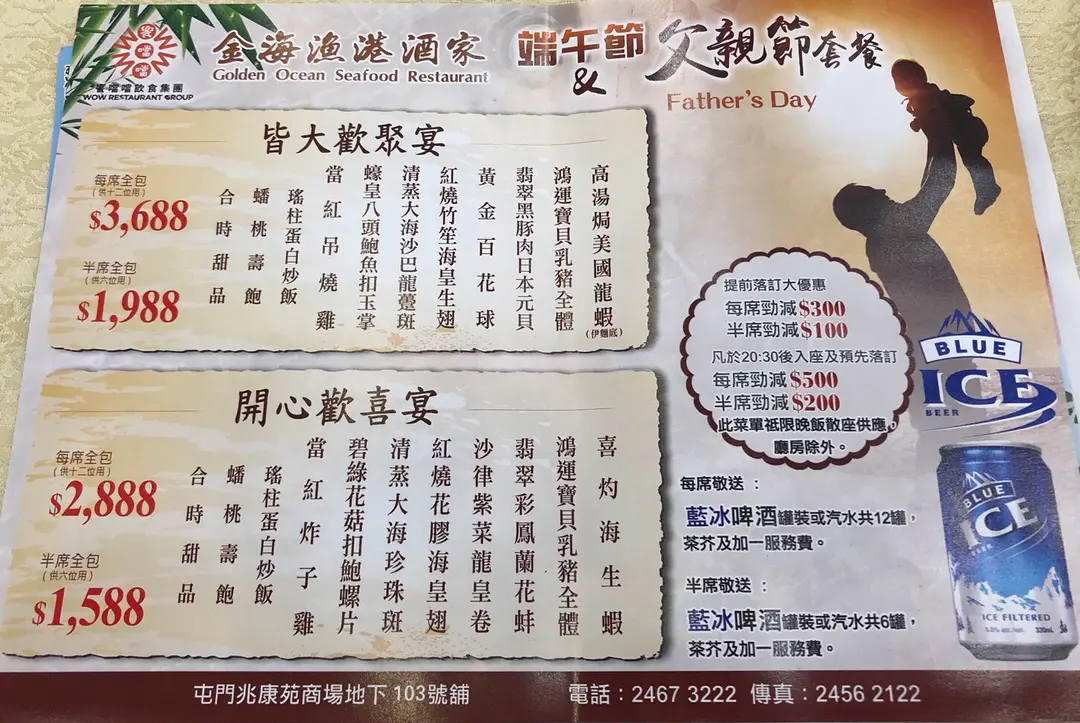 饗噹噹飲食集團
WOW RESTAURANT GROUP
金海漁港酒家
Golden Ocean Seafood Restaurant
端午節
&
父親節套餐
Father's Day
皆大歡聚宴
每席全包
(供十二位用)
$3,688
半席全包
(供六位用)
$1,988
高湯焗美國龍蝦(伊麵底)
鴻運寶貝乳豬全體
翡翠黑豚肉日本元貝
黃金百花球
紅燒竹笙海皇生翅
清蒸大海沙巴龍躉斑
蠔皇八頭鮑魚扣玉掌
當紅吊燒雞
瑤柱蛋白炒飯
蟠桃壽飽
合時甜品
開心歡喜宴
每席全包
(供十二位用)
$2,888
半席全包
(供六位用)
$1,588
喜灼海生蝦
鴻運寶貝乳豬全體
翡翠彩鳳蘭花蚌
沙律紫菜龍皇卷
紅燒花膠海皇翅
清蒸大海珍珠斑
碧綠花菇扣鮑螺片
當紅炸子雞
瑤柱蛋白炒飯
蟠桃壽飽
合時甜品
提前落訂大優惠
每席勁減$300
半席勁減$100
凡於20:30後入座及預先落訂
每席勁減$500
半席勁減$200
此菜單祗限晚飯散座供應,
廳房除外。
BLUE
ICE
BEER
每席敬送：
藍冰啤酒罐裝或汽水共12罐,
茶芥及加一服務費。
半席敬送：
藍冰啤酒罐裝或汽水共6罐,
茶芥及加一服務費。
BLUE
ICE
BEER
ICE FILTERED
330mL
屯門兆康苑商場地下 103號舖
電話：2467 3222 傳真：2456 2122